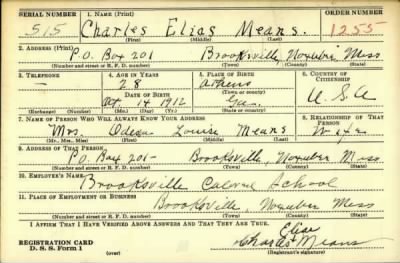 SERIAL NUMBER 1. NAME (Print) ORDER NUMBER
515 Charles Elias Means. 1255
(First) (Middle) (Last)
2. ADDRESS (Print)
P.O. Box 201 Brooksville, Noxubee Miss
(Number and street or R. F. D. number) (Town) (County) (State)
3. TELEPHONE 4. AGE IN YEARS 5. PLACE OF BIRTH 6. COUNTRY OF CITIZENSHIP
— 28 Athens
DATE OF BIRTH (Town or county)
Oct. 14 1912 Ga. U.S.A
(Exchange) (Number) (Mo.) (Day) (Yr.) (State or country)
7. NAME OF PERSON WHO WILL ALWAYS KNOW YOUR ADDRESS 8. RELATIONSHIP OF THAT PERSON
Mrs. Odessa Louise Means Wife
(Mr., Mrs., Miss) (First) (Middle) (Last)
9. ADDRESS OF THAT PERSON
P.O. Box 201- Brooksville, Noxubee Miss
(Number and street or R. F. D. number) (Town) (County) (State)
10. EMPLOYER'S NAME
Brooksville School
11. PLACE OF EMPLOYMENT OR BUSINESS
Brooksville, Noxubee Miss
(Number and street or R. F. D. number) (Town) (County) (State)
I AFFIRM THAT I HAVE VERIFIED ABOVE ANSWERS AND THAT THEY ARE TRUE.
REGISTRATION CARD
D. S. S. Form 1 (over)
Elias
Charles Means
(Registrant's signature)